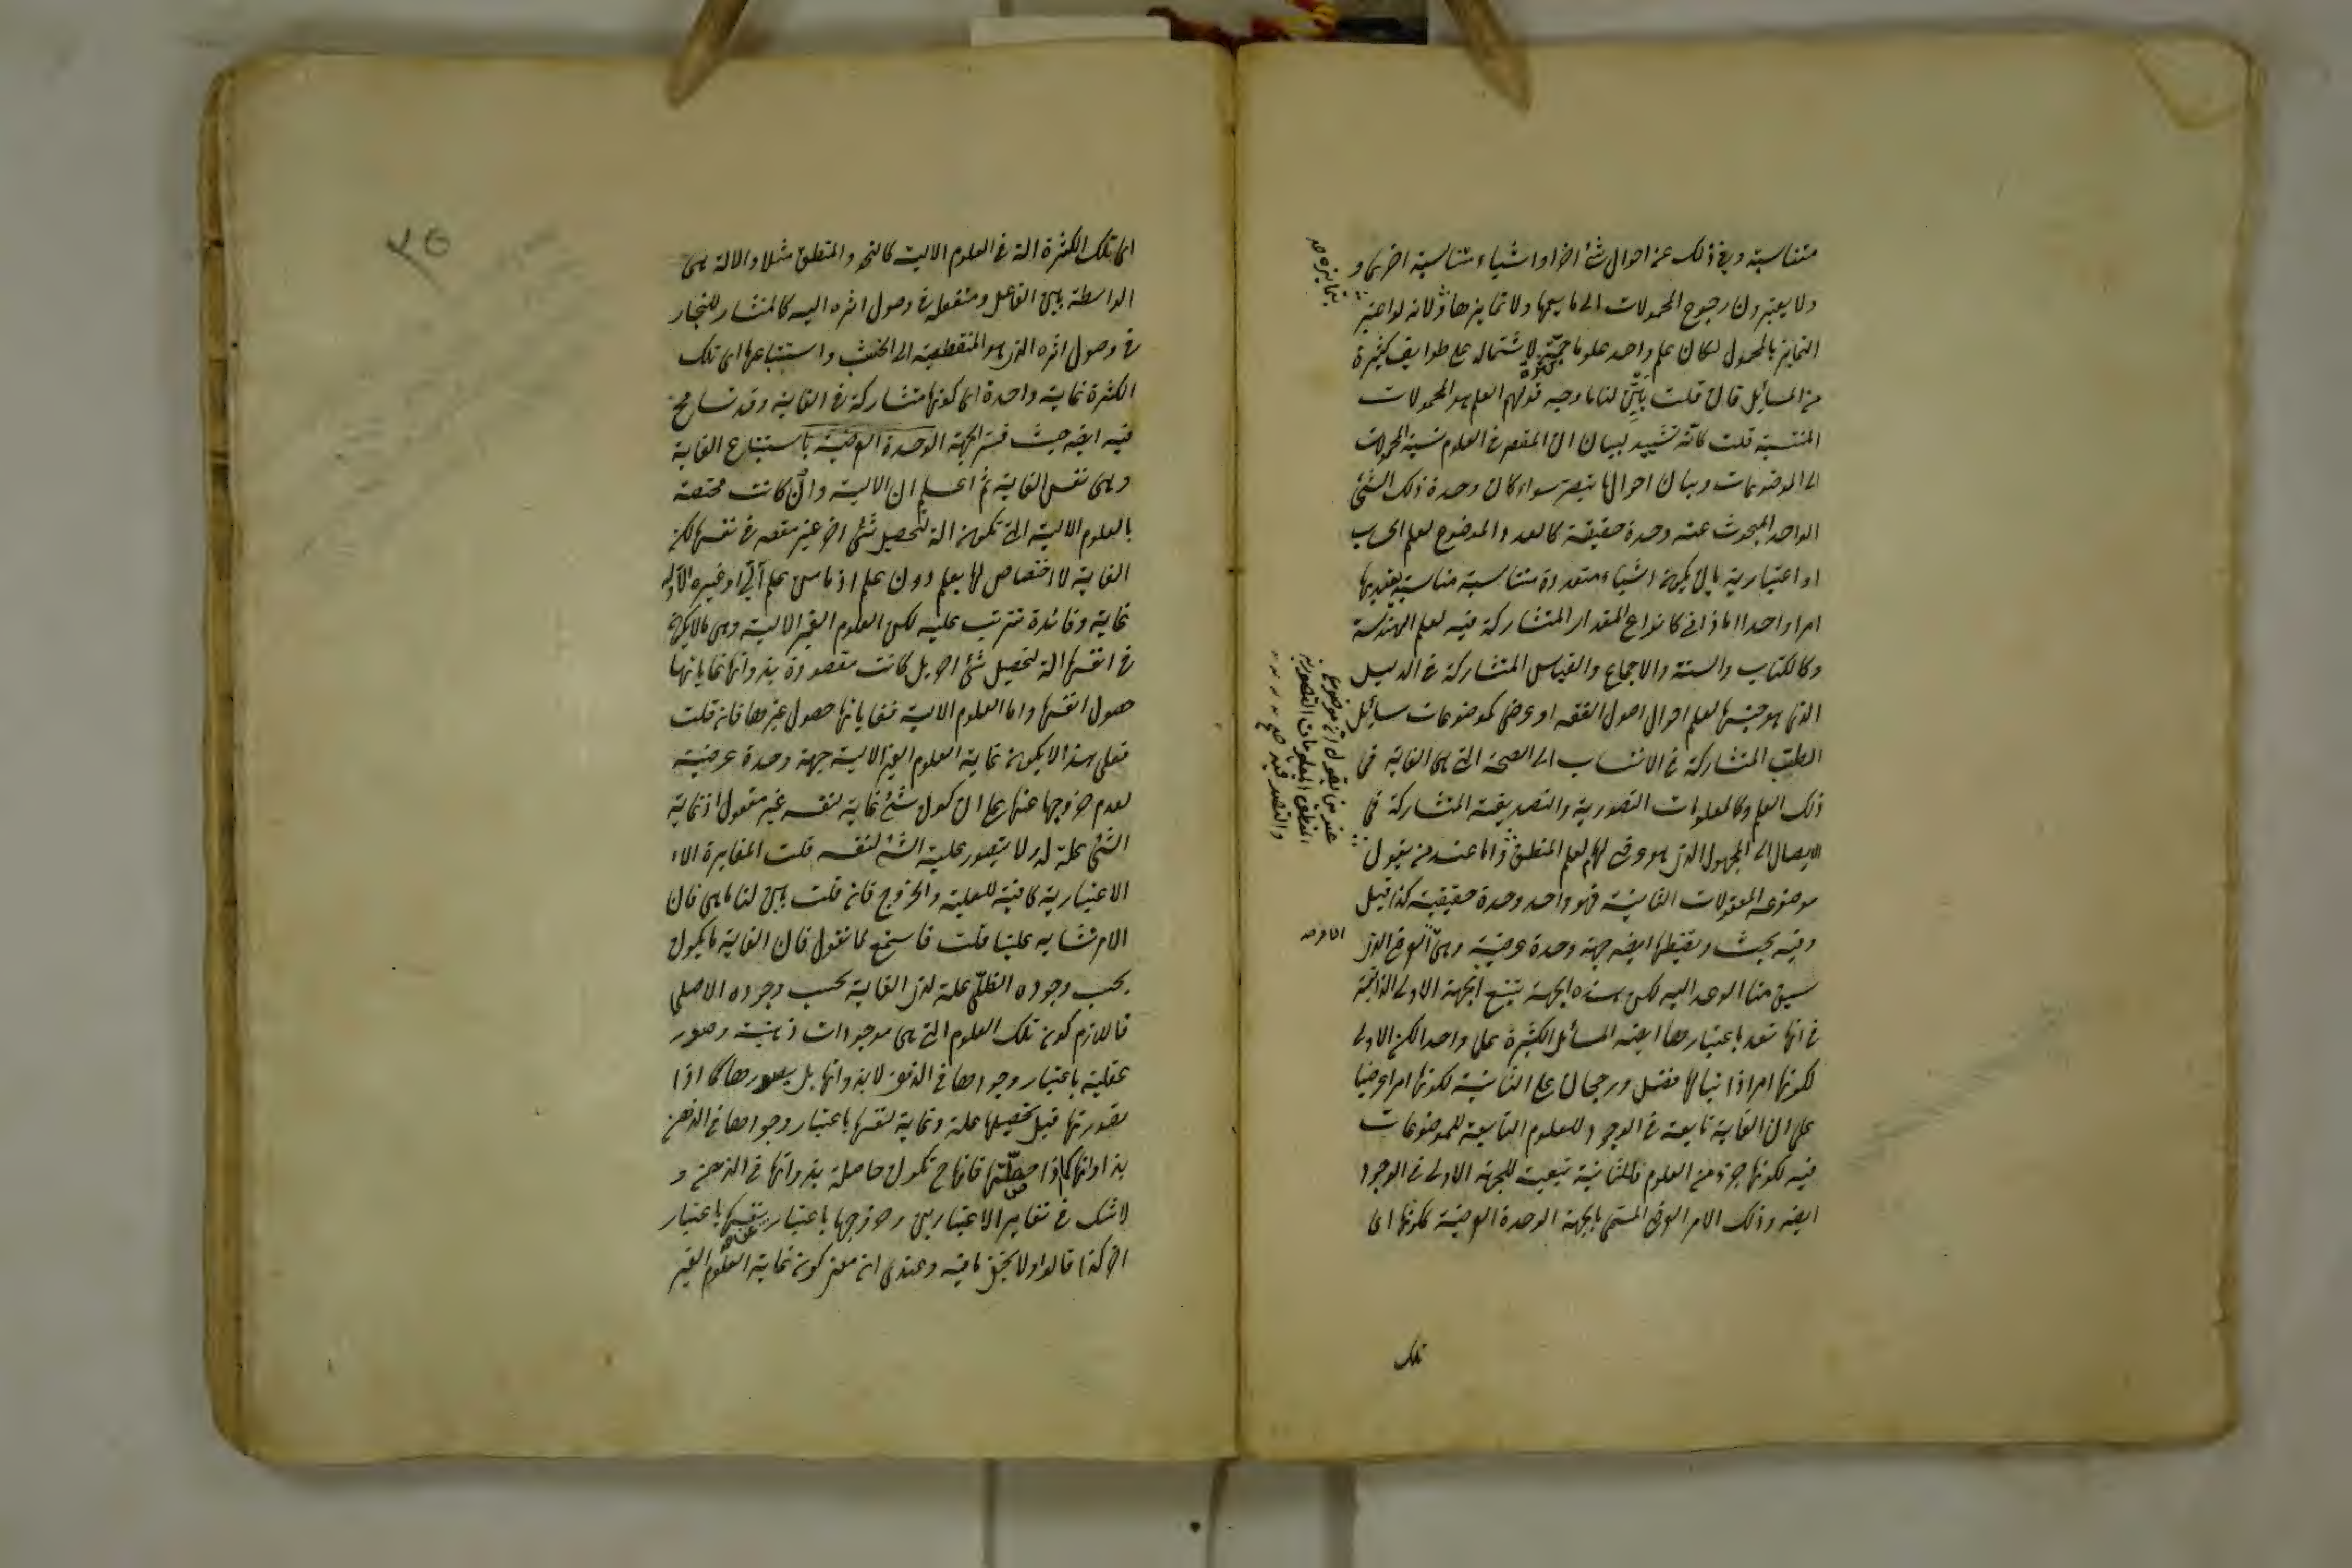 متناسبة وفي ذلك عن احوال شئ اخر او اشياء متناسبة اخرى و
ولا يعتبرون رجوع المحمولات الى ما يعمها ولا تمايزها ولانه لو اعتبر
التمايز بالمحمول لكان علم واحد علوما جمة لاشتماله على طوايف كثيرة
من المسائل قان قلت بين لنا ما وجه قولهم العلم هو المحمولات
المنتسبة قلت كانه تشييد لبيان ان المقصد في العلوم نسبة المحمولات
الى الموضوعات وبيان احوالها سواء كان وحدة ذلك الشئ
الواحد المبحوث عنه وحدة حقيقة كالعدد الموضوع لعلم الحساب
او اعتبارية بان يكون اشياء متعددة متناسبة مناسبة يعتد بها
امرا واحدا اما ذاتي كانواع المقدار المتشاركة فيه لعلم الهندسة
وكالكتاب والسنة والاجماع والقياس المتشاركة في الدليل
الذي هو جنسها لعلم احوال اصول الفقه او عرضي كموضوعات مسائل
الطب المتشاركة في الانتساب الى الصحة التي هي الغاية في
ذلك العلم وكالمعلومات التصورية والتصديقية المتشاركة في
الايصال الى المجهول الذي هو عرضي لهم لعلم المنطق واما عند من يقول
موضوعه المعقولات الثانية فهو واحد وحدة حقيقية كذا قيل
وفيه بحث ويضبطها ايضه جهة وحدة عرضية وهي العرض الذي
سبق منا الوعد اليه لكن هذه الجهة يتبع الجهة الاولى الذاتية
في انها تعد باعتبارها ايضه المسائل الكثيرة علما واحدا لكن الاولى
لكونها امرا ذاتيا لها فضل ورجحان على الثانية لكونها امرا عرضيا
على ان الغاية تابعة في الوجود للعلوم التابعة للموضوعات
فيه لكونها جزء من العلوم فالثانية تبعية للجهة الاولى في الوجود
ايضه وذلك الامر العرضي المسمى بالجهة الوحدة العرضية لكونها اى
تلك
بتمايزه صح
عند من يقول ان موضوع
المنطق المعلومات التصورية
والتصديقية صح
اى تلك الكثرة الة في العلوم الالية كالنحو والمنطق مثلا والالة هى
الواسطة بين الفاعل ومنفعله في وصول اثره اليه كالمنشار للنجار
في وصول اثره الذي هو المنقطعية الى الخشب واستتباعها اى تلك
الكثرة غاية واحدة اى كونها متشاركة في الغاية وقد تسامح
فيه ايضه حيث فسر الجهة الوحدة العرضية باستتباع الغاية
وهى نفس الغاية ثم اعلم ان الالية وان كانت مختصة
بالعلوم الالية التي تكون الة لتحصيل شئ اخر غير مقصه في نفسها لكن
الغاية لا اختصاص لها بعلم دون علم اذ ما من علم آلي او غيره الا وله
غاية وفائدة تترتب عليه لكن العلوم الغير الالية وهى ما لا يكون
في انفسها الة لتحصيل شئ اخر بل كانت مقصودة بذواتها غاياتها
حصول انفسها واما العلوم الالية فغاياتها حصول غيرها فان قلت
فعلى هذا لا يكون غاية العلوم الغير الالية جهة وحدة عرضية
لعدم خروجها عنها على ان كون شئ غاية لنفسه غير معقول اذ غاية
الشئ علة له ولا يتصور علية الشئ لنفسه قلت المغايرة الا
الاعتبارية كافية للعلية والخروج فان قلت بين لنا ما هى فان
الامر تشابه علينا قلت فاسمع لما نقول فان الغاية ما يكون
بحسب وجوده الظلي علة لذي الغاية بحسب وجوده الاصلي
فاللازم كون تلك العلوم التي هى موجودات ذهنية وصور
عقلية باعتبار وجودها في الذهن لا بذواتها بل بصورها كما اذا
تصورتها قبل تحصيلها علة وغاية لنفسها باعتبار وجودها في الذهن
بذاواتها كما اذا حصلتها فانها ح تكون حاصلة بذواتها في الذهن و
لا شك في تغاير الاعتبارين وخروجها باعتبار عن نفسها باعتبار
اخر كذا قالوا ولا يخفى ما فيه وعندى ان معنى كون غاية العلوم الغير